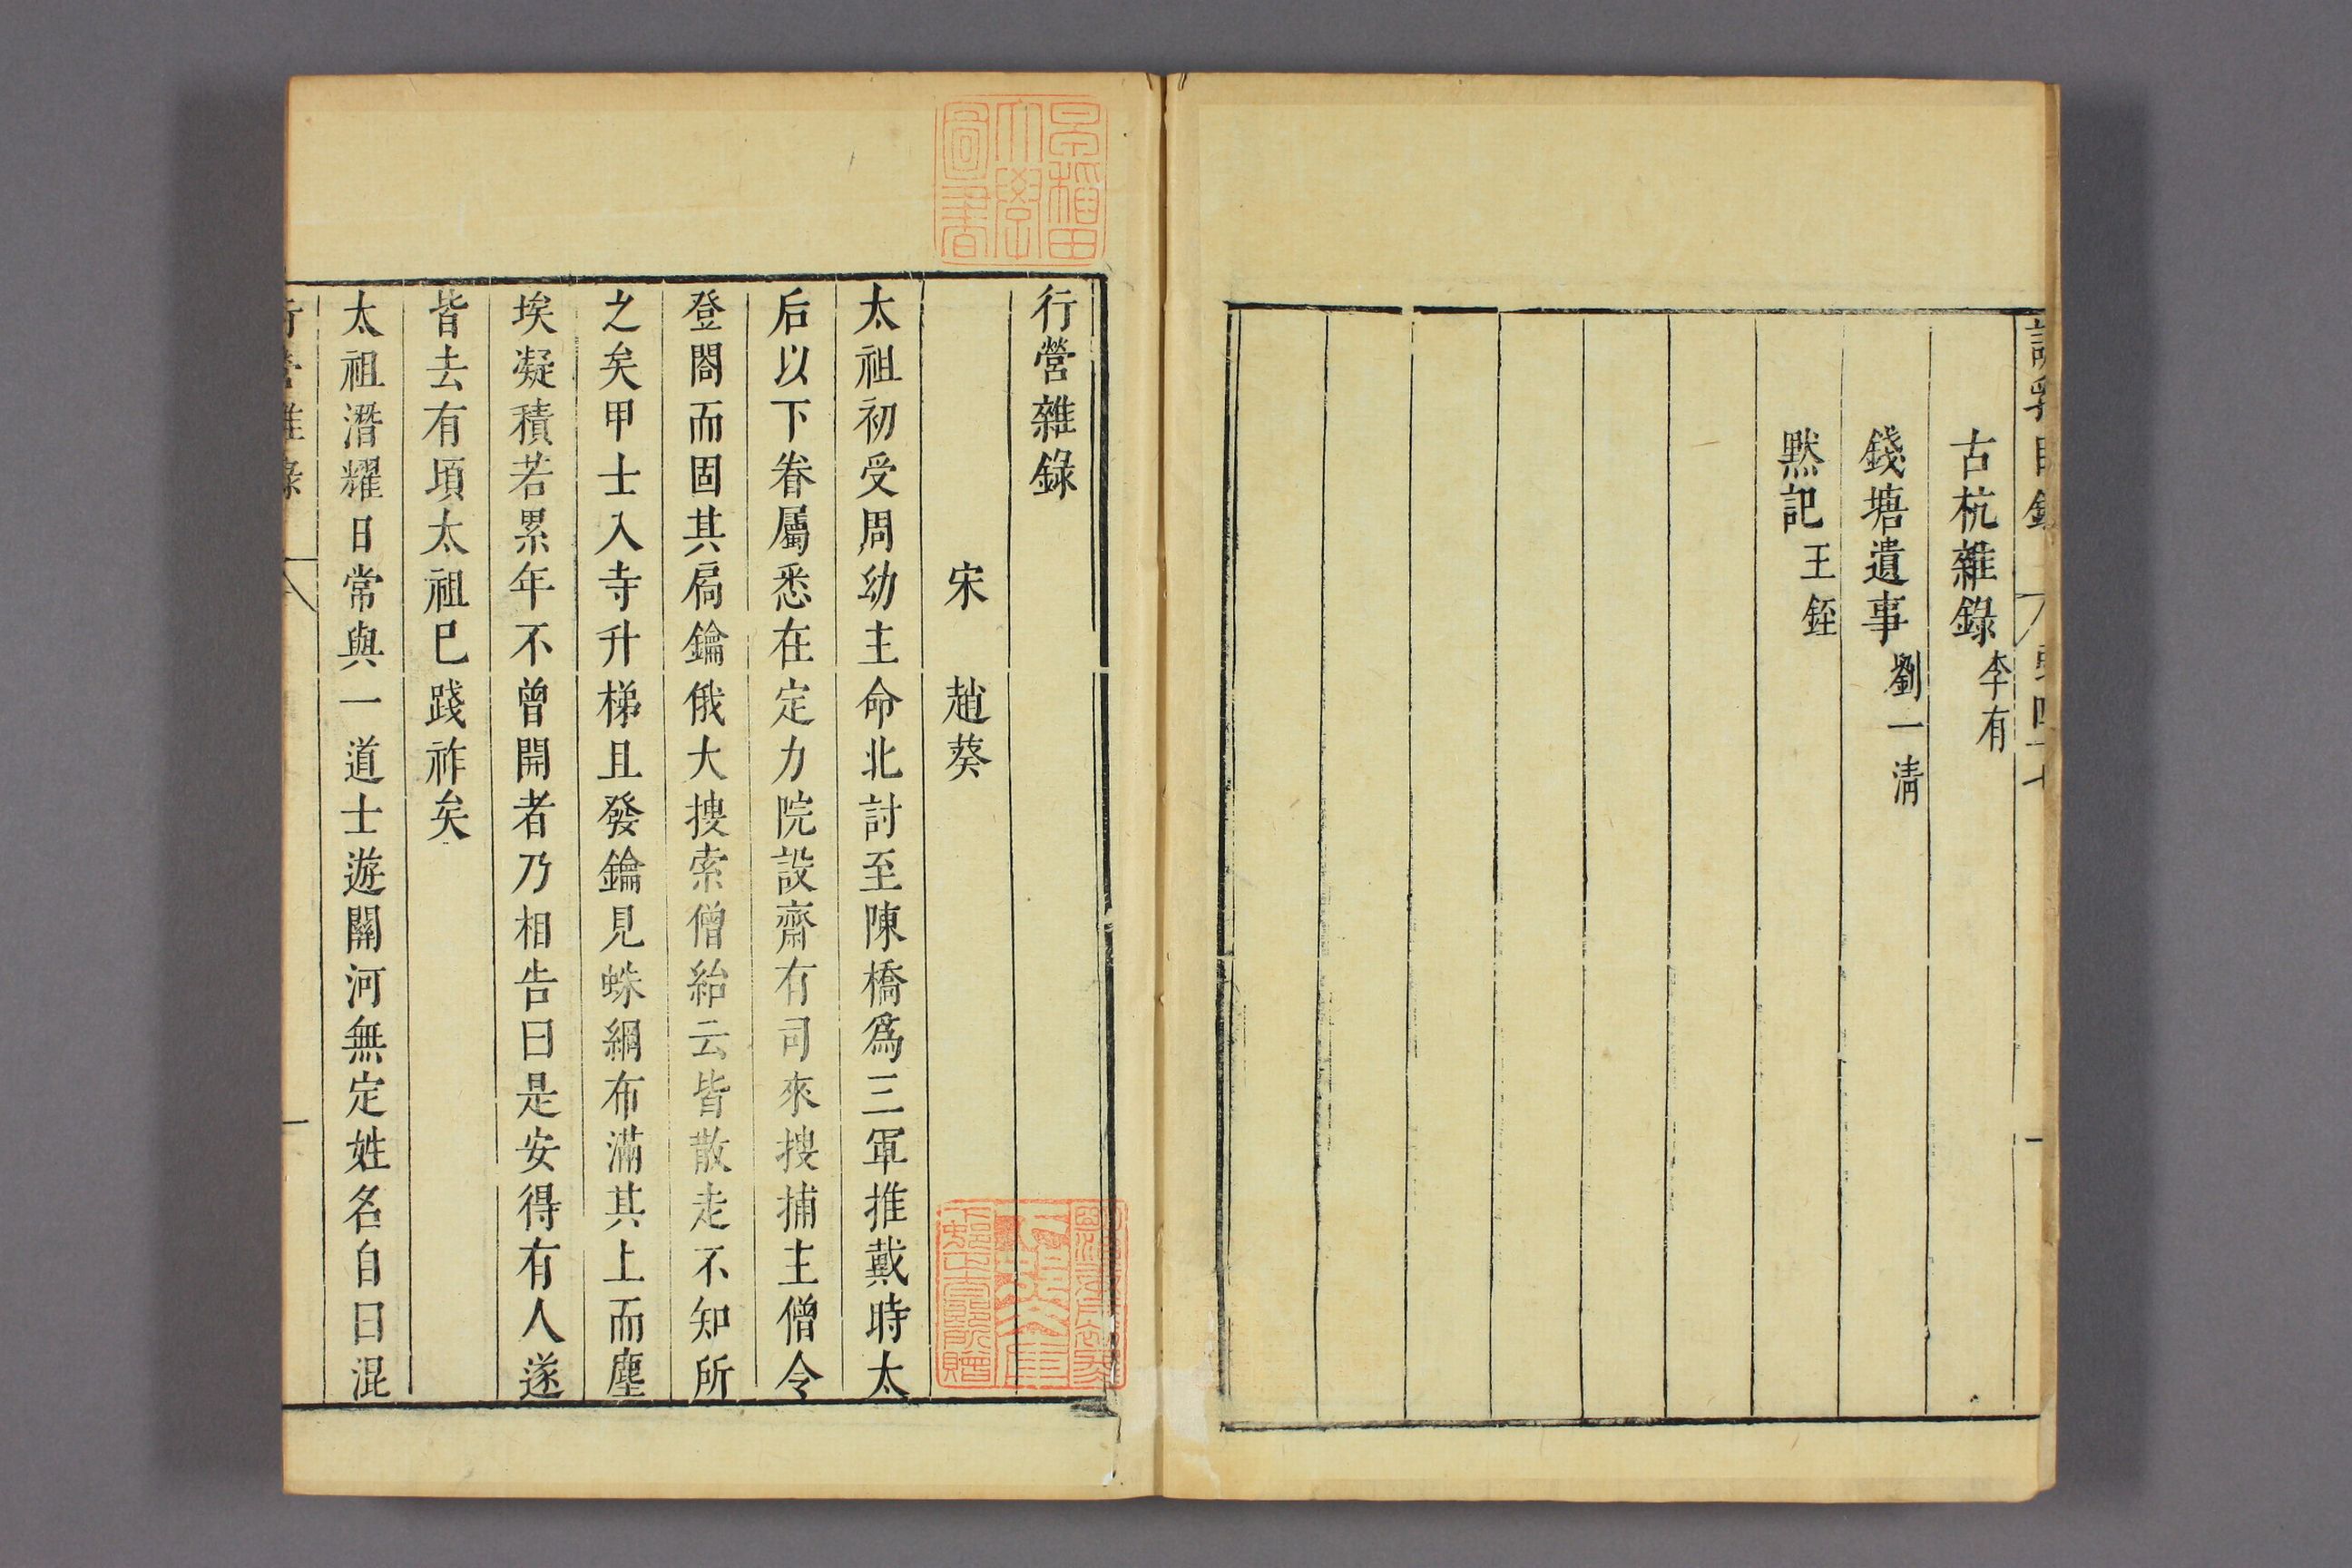 古杭雜錄 李有
錢塘遺事 劉一清
黙記 王銍
行營雜錄
宋 趙葵
太祖初受周幼主命北討至陳橋爲三軍推戴時太
后以下眷屬悉在定力院設齋有司來搜捕主僧令
登閣而固其扃鑰俄大搜索僧紿云皆散走不知所
之矣甲士入寺升梯且發鑰見蛛網布滿其上而塵
埃凝積若累年不曾開者乃相告曰是安得有人遂
皆去有頃太祖已踐祚矣
太祖潛耀日常與一道士遊關河無定姓名自曰混
行營雜錄
早稻田大學圖書